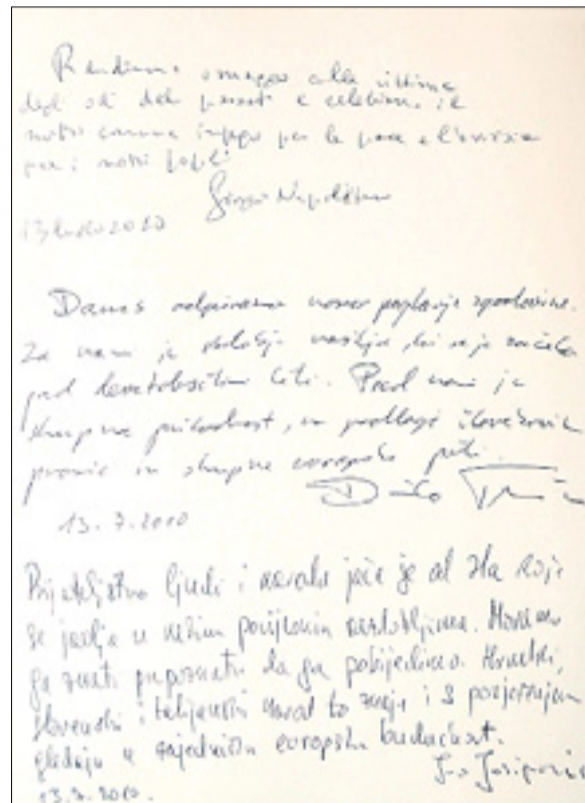 Rendiamo omaggo alle vittime
degli del passato e celebriamo il
nostro comune impegno per la pace e l'amicizia
per i nostri popoli
Giorgio Napolitano
13 luglio 2010
Danes odpiramo novo poglavje zgodovine.
Za nami je obdobje nasilja, ki se je začelo
pred devetdesetimi leti. Pred nami je
skupna prihodnost, na podlagi človekovih
pravic in skupne evropske poti.
Danilo Türk
13.7.2010
Prijateljstvo ljudi i naroda jače je od zla koje
se javlja u nekim povijesnim razdobljima. Moramo
ga znati prepoznati da ga pobijedimo. Hrvatski,
slovenski i talijanski narod to znaju i s povjerenjem
gledaju u zajedničku europsku budućnost.
Ivo Josipović
13.7.2010.